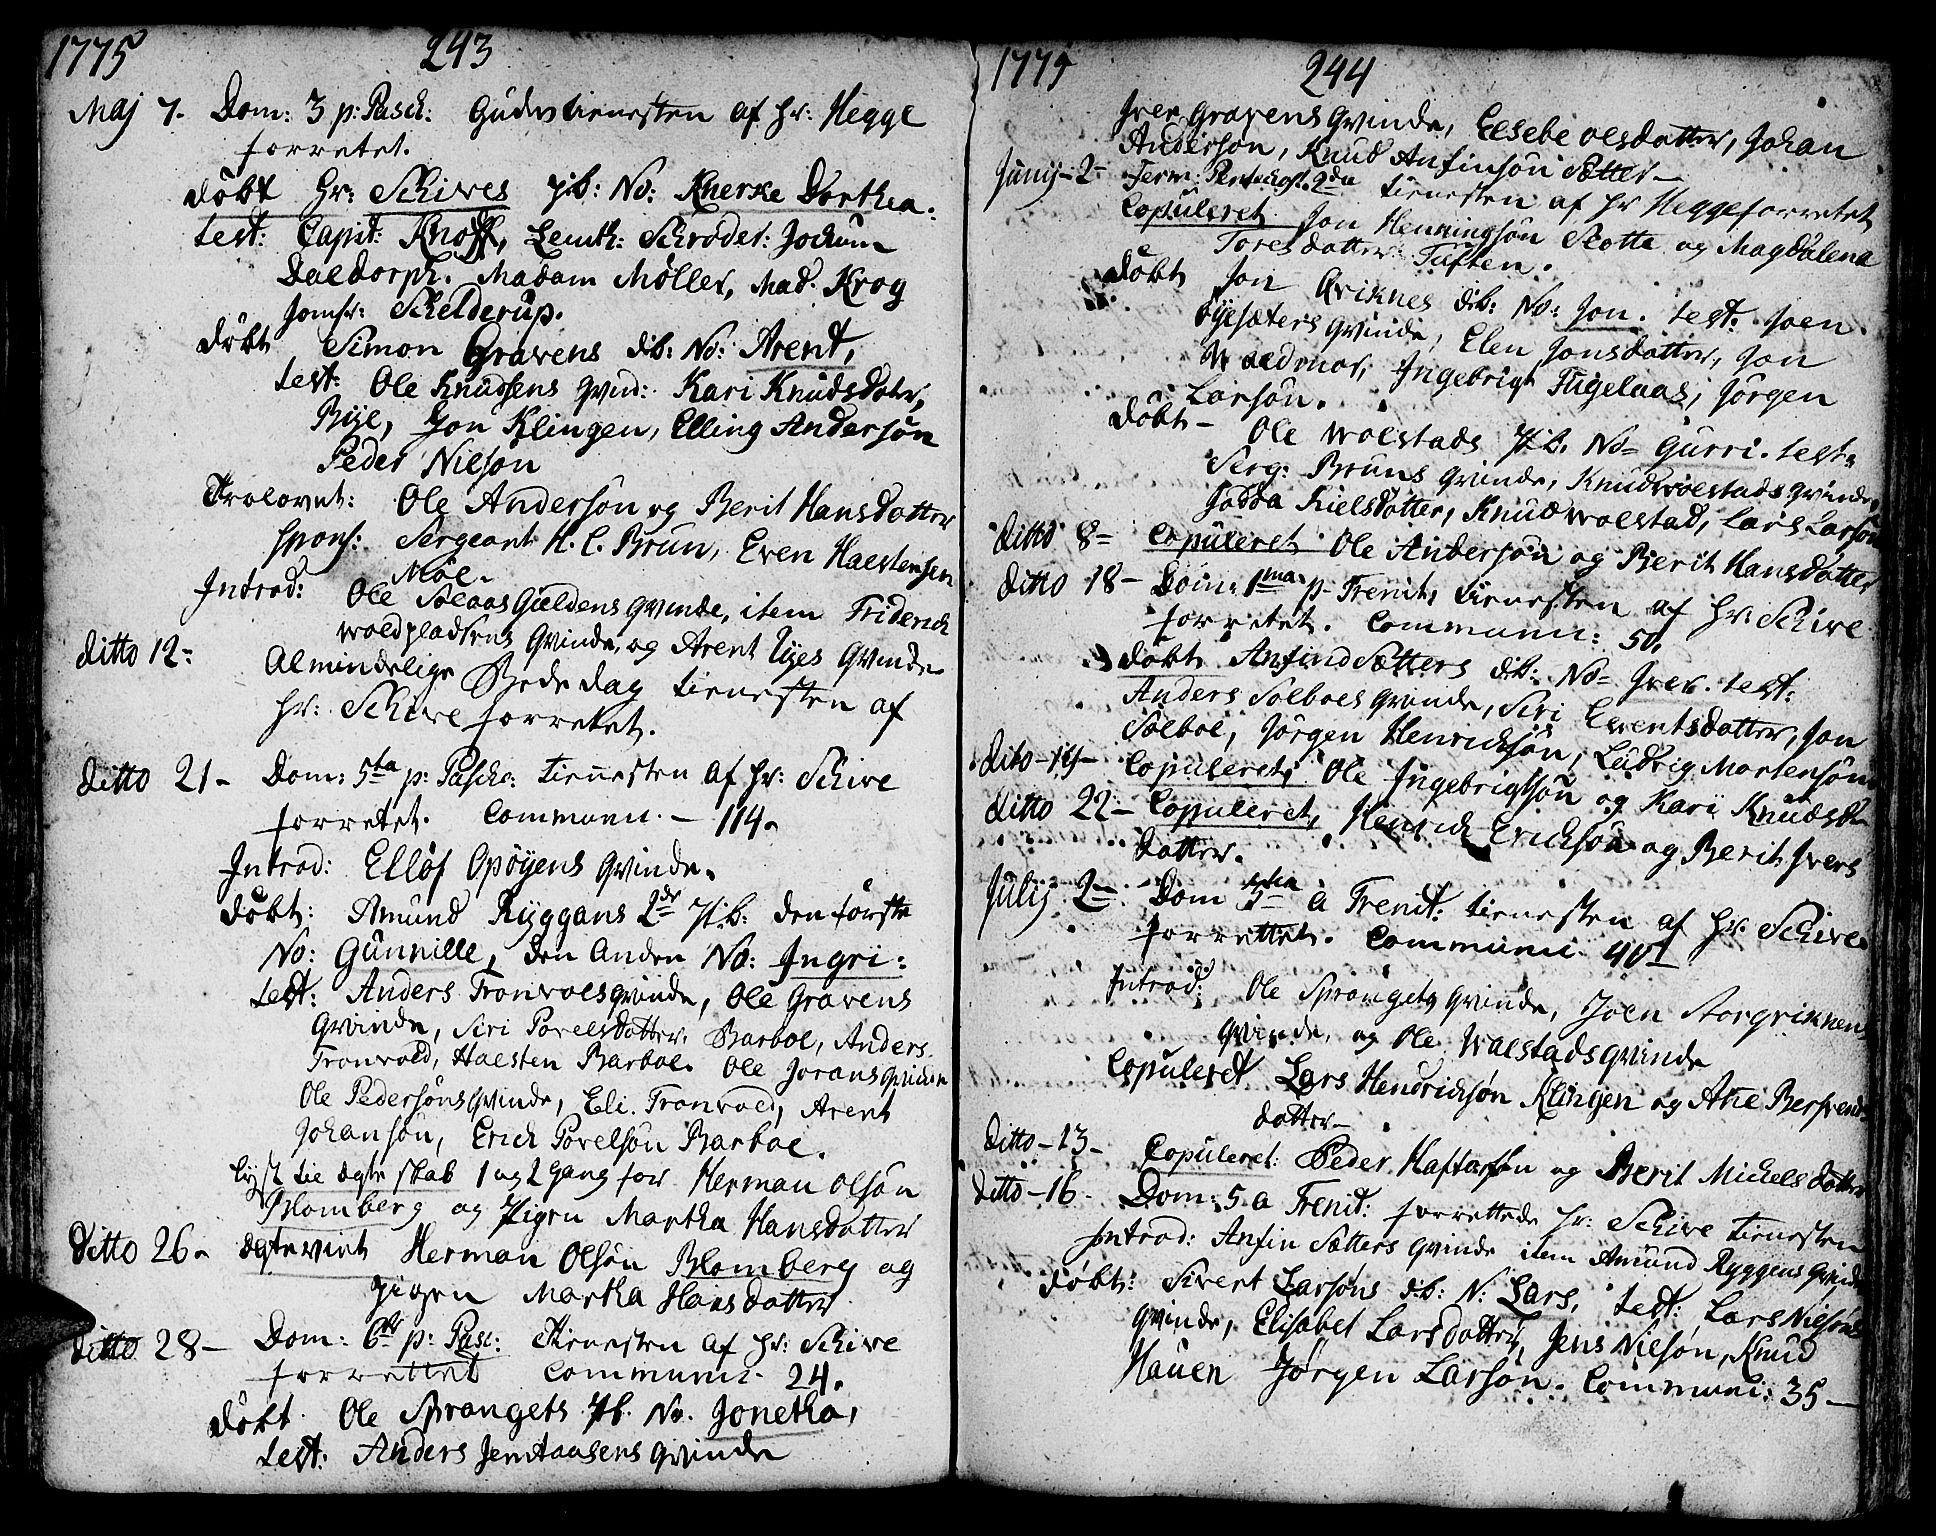 1775 243
Maj 7. Dom: 3 p: Pasch: Gudestienesten af Hr: Hegge
forretet.
döbt Hr: Schives pib: No: Knerke Dorthea.
test: Capit: Knoff, Leinth: Schrøder: Jochum
Daldorph. Madam Möller, Mad: Krog
Jomfr: Schelderup.
döbt Simon Gravens dib: No: Arent,
test: Ole Knudsens qvind: Kari Knudsdatr,
Rye, Jon Klingen, Elling Andersön
Peder Nielsön
Trolovet: Ole Andersön og Berit Hansdatter
spons: Sergeant H. C. Brun, Even Haestensen
Moe.
Introd: Ole Solaas Gieldens qvinde, item Friderich
woldpladsens Qvinde, og Arent Uyes Qvinde
ditto 12- Almindelige Bededag tienesten af
Hr: Schive forretet.
ditto 21- Dom: 5ta p: Pasche: tienesten af Hr: Schive
forretet. Communi. - 114.
Introd: Ellof Opöyens qvinde.
döbt: Amund Ryggans 2de pib: den förste
No: Gunnille, den anden No: Ingri:
test: Anders Tronvoes qvinde, Ole Gravens
qvinde, Siri Povelsdatter Barboe, Anders
Tronvold, Haesten Barboe. Ole Jorans qvinde
Ole Pedersöns qvinde, Eli Tronvold, Arent
Johansön, Erich Povelsön Barboe.
lyst til ægteskab 1 og 2 gang for Herman Olsön
Blomberg og Pigen Martha Hansdatter
ditto 26- ægteviet Herman Olsön Blomberg og
pigen Martha Hansdatter
ditto 28- Dom: 6te p: Pasc: Tienesten af Hr: Schive
forrettet Communi. 24.
döbt. Ole Sprangets pb. No. Jonetha,
test: Anders Jemtaasens qvinde
1775 244
Iver Gravens qvinde, Elsebe Olsdatter, Johan
Andersön, Knud Anfinsön Sætter-
Junij-2- Ferm: Pentecost. 2da tienesten af Hr Hegge forretet
Copuleret Jon Henningsön Slotte og Magdalena
Toresdatter Tuften.
döbt Jon Qviknes dib: No: Jon. test: Joen
öyesæters qvinde, Elen Jonsdatter, Jon
Woldmoe, Ingebrigt Fugelaas, Jörgen
Larsön.
döbt- Ole Wolstads Pib. No= Gurri. test:
Serg: Bruns qvinde, Knud wolstads qvinde,
Jodda Kielsdatter, Knud wolstad, Lars Larsön
ditto 8= Copuleret Ole Andersön og Berit Hansdatter
ditto 18- Dom: 1ma p- Trenit, tienesten af Hr: Schive
forretet. Communi: 50.
döbt Anfind Sætters dib: No= Iver. test:
Anders Solboes qvinde, Siri Eventsdatter, Jon
Solboe, Jörgen Henrichsön, Ludvig Mortensön.
dito-19- Copuleret, Ole Ingebrigtsön og Kari Knudsd-
ditto 22- Copuleret, Henrich Erichsön og Berit Ivers
datter.
Julij 2- Dom 3tia a Trenit: tienesten af Hr: Schive.
forrettet. Communi 40
Introd: Ole Sprangets qvinde, Joen Storqviknens
qvinde, og Ole Walstads qvinde
Copuleret Lars Hendrichsön Klingen og Ane Bersvend
datter-
ditto-13- Copuleret: Peder Haftorsön og Berit Michelsdatter
ditto-16- Dom: 5. a Trenit: forrettede Hr: Schive tienesten
Introd: Anfin Sætters qvinde item Amund Ryggens qvinde
döbt: Sivert Larsöns dib: N: Lars, test: Lars Nielsöns
qvinde, Elisabet Larsdatter, Jens Nielsön, Knud
Hauen Jörgen Larsön. Communi: 35-